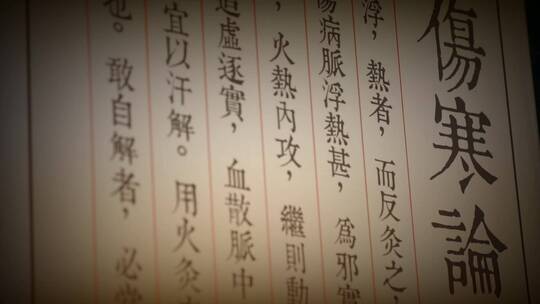 傷寒論
浮，熱者，而反灸之，
病脈浮熱甚，爲邪實
，火熱內攻，繼則動
追虛逐實，血散脈中
宜以汗解。用火灸
也。敢自解者，必當